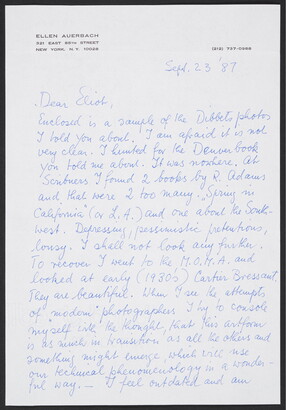 ELLEN AUERBACH
321 EAST 69TH STREET
NEW YORK, N.Y. 10028
(212) 737-0966
Sept. 23 '87
Dear Eliot,
Enclosed is a sample of the Dibbets photos
I told you about. I am afraid it is not
very clear. I hunted for the Denver book
you told me about. It was nowhere. At
Scribners I found 2 books by R. Adams
and that were 2 too many. "Spring in
California" (or L.A.) and one about the South-
west. Depressing, pessimistic, pretentious,
lousy. I shall not look any further.
To recover I went to the M.O.M.A. and
looked at early (1930's) Cartier Bressant.
They are beautiful. When I see the attempts
of "modern" photographers I try to console
myself with the thought, that this artform
is as much in transition as all the others and
something might emerge, which will use
our technical phenomenology in a wonder-
ful way. — I feel outdated and am